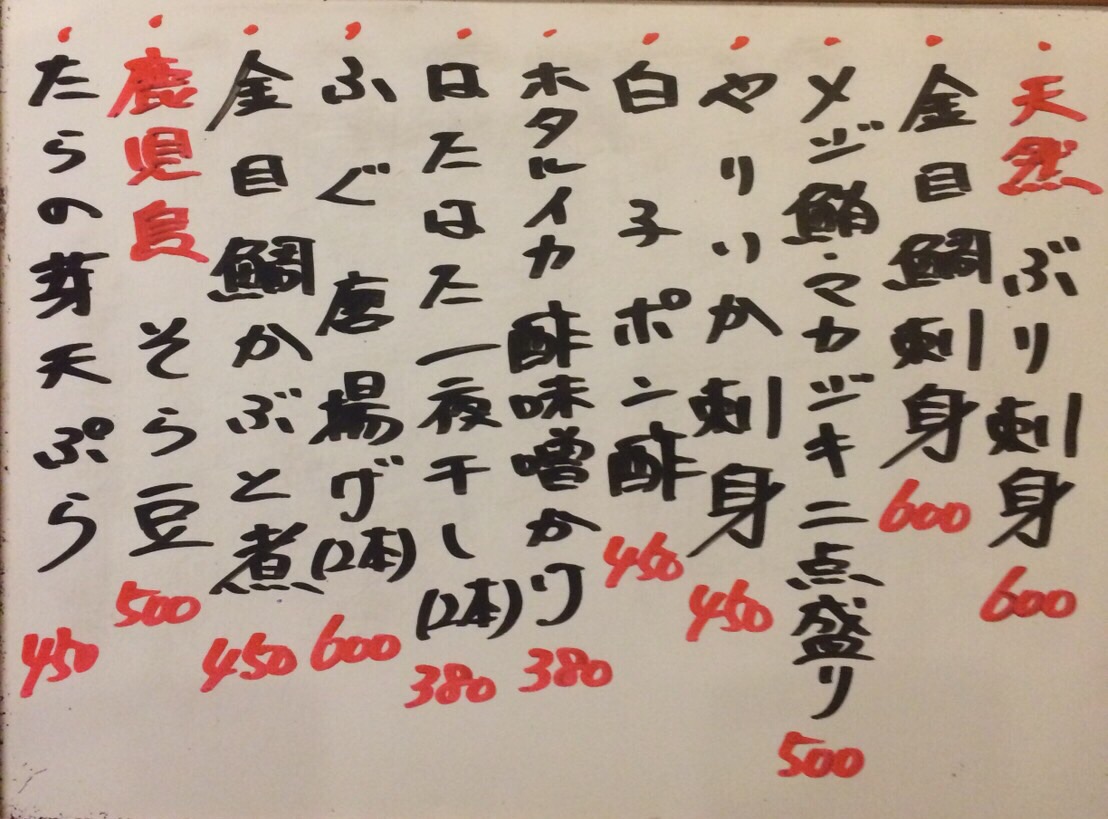 ・天然 ぶり刺身 600
・金目鯛刺身 600
・メジ鮪・マカジキ二点盛り 500
・やりいか刺身 450
・白子ポン酢 450
・ホタルイカ酢味噌かけ 380
・はたはた一夜干し(2本) 380
・ふぐ唐揚げ(2本) 600
・金目鯛かぶと煮 450
・鹿児島 そら豆 500
・たらの芽天ぷら 450